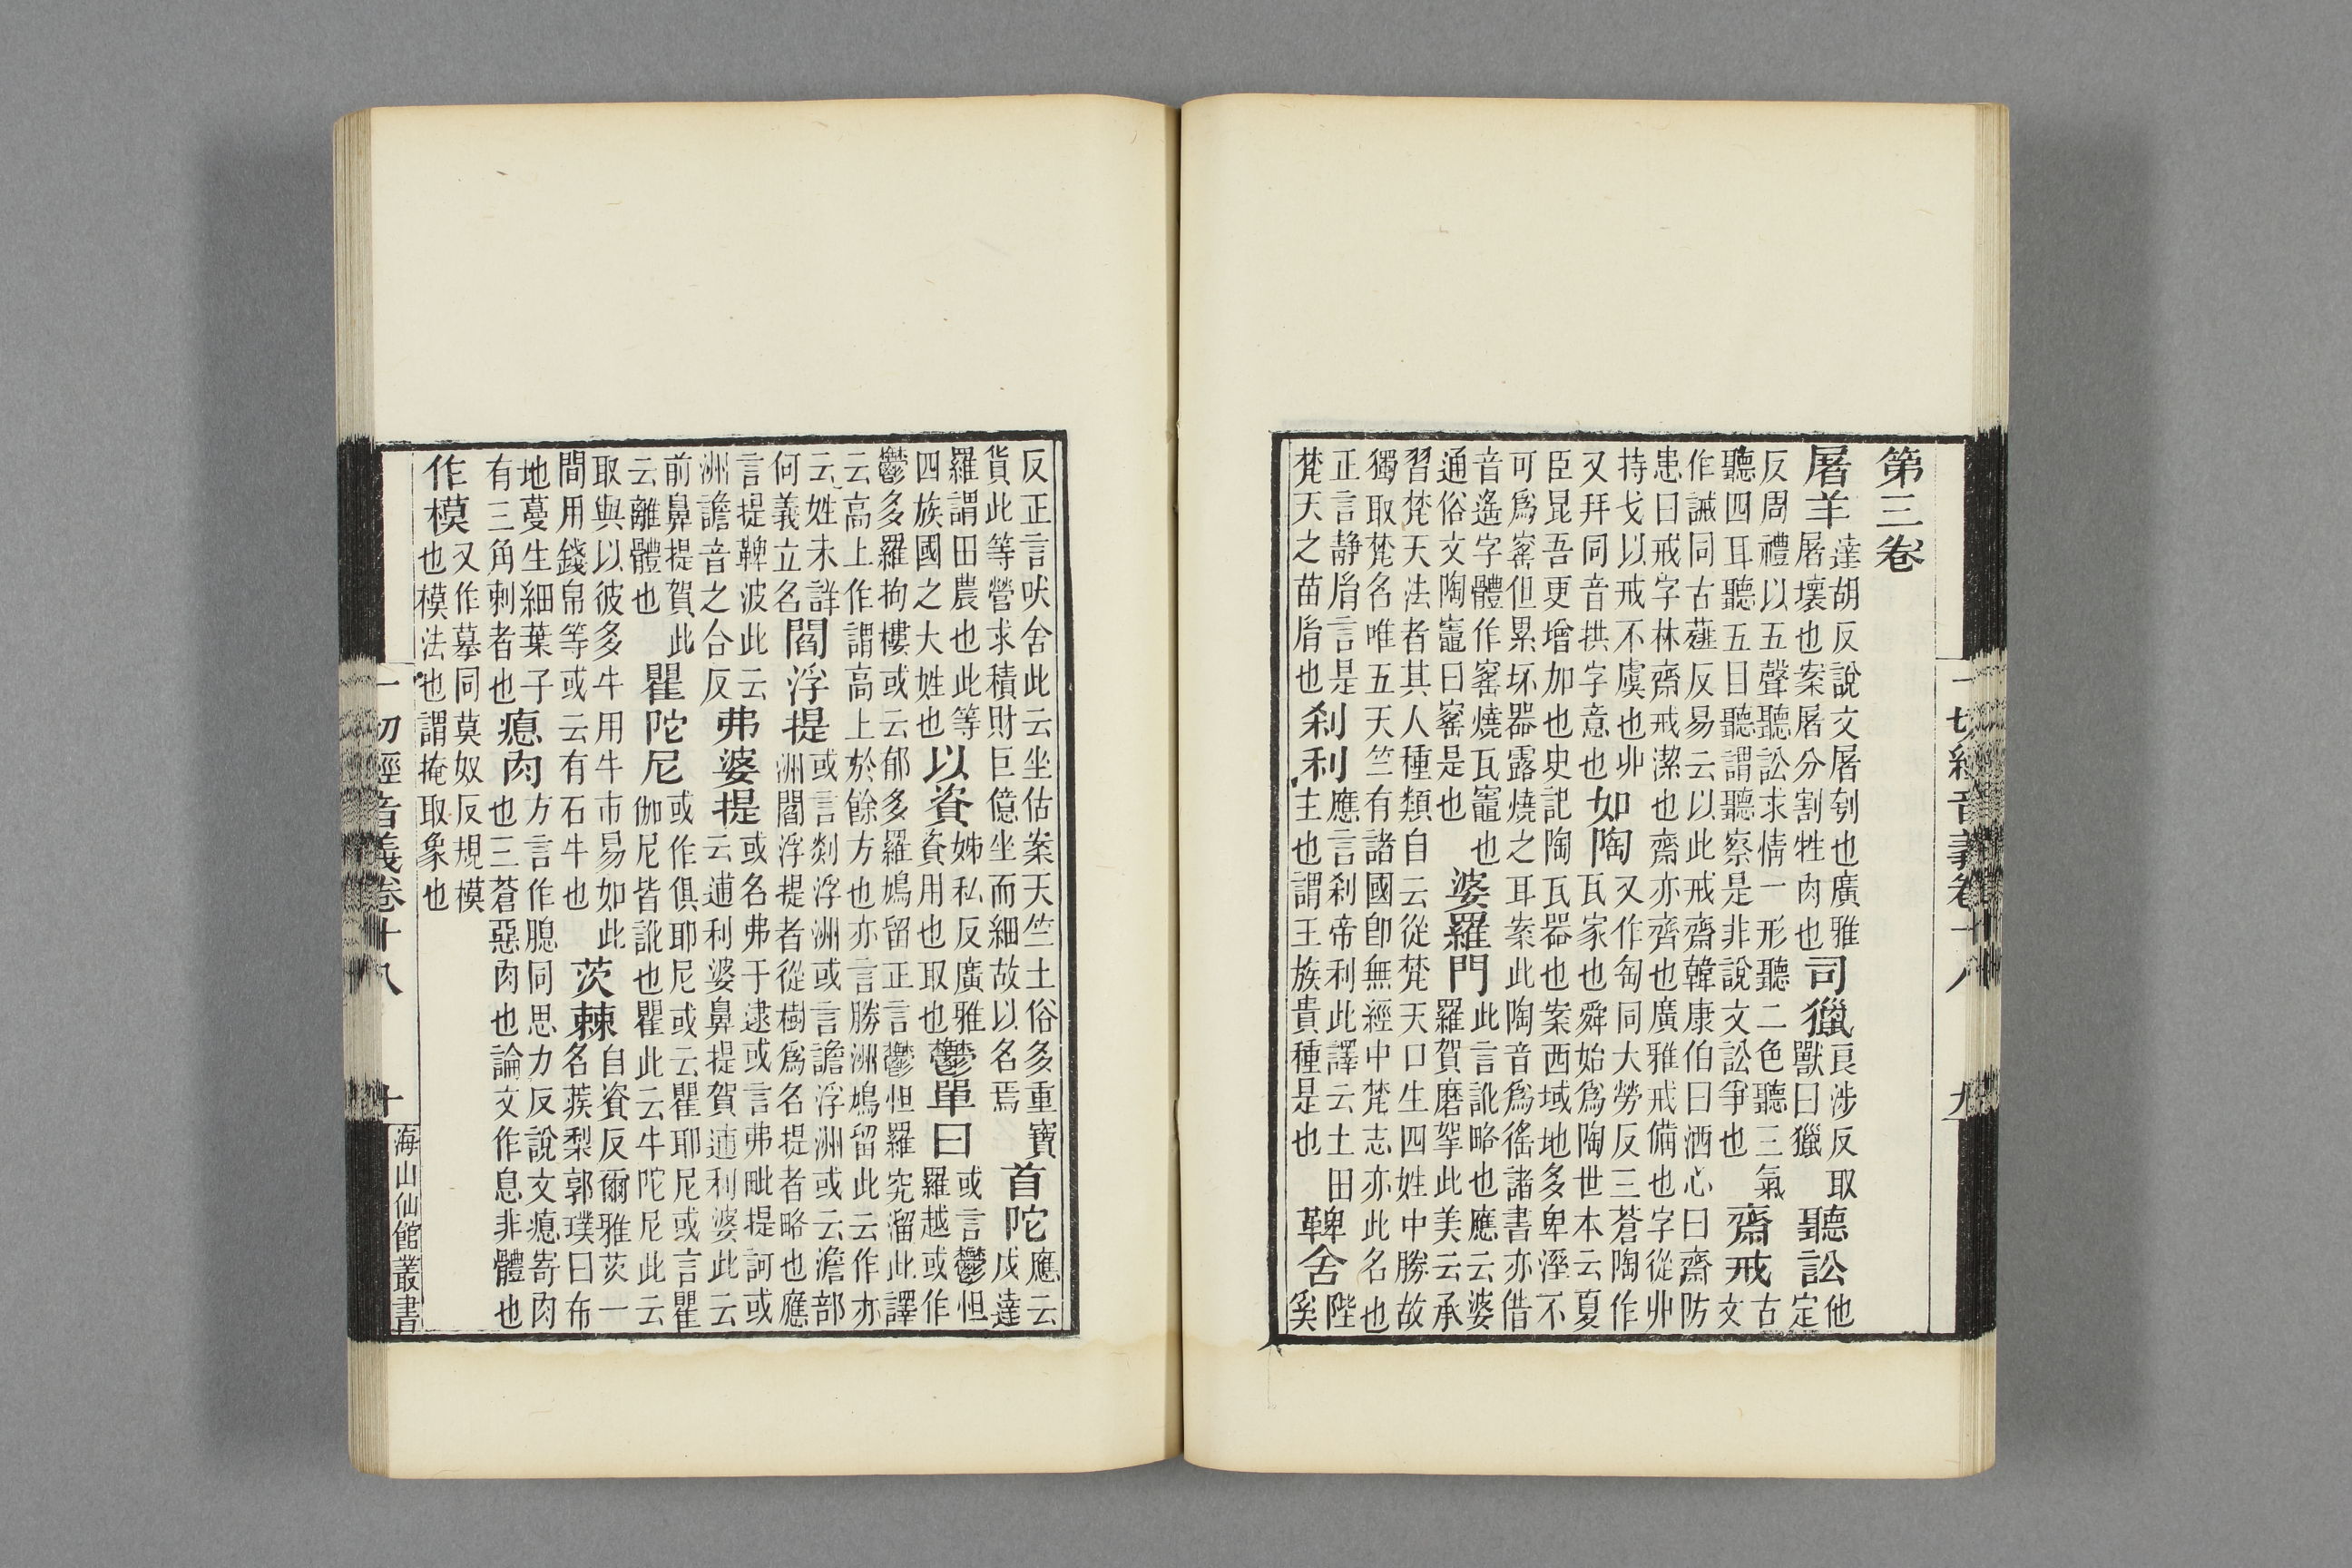 一切經音義卷十八 九
第三卷
屠羊達胡反說文屠刳也廣雅屠壞也案屠分割牲肉也司獵良涉反取獸曰獵聽訟他定
反周禮以五聲聽訟求情一形聽二色聽三氣聽四耳聽五目聽謂聽察是非說文訟爭也齋戒古文
作誡同古薤反易云以此戒齋韓康伯曰洒心曰齋防患曰戒字林齋戒潔也齋亦齊也廣雅戒備也字從廾
持戈以戒不虞也廾又拜同音拱字意也如陶又作匋同大勞反三蒼陶作瓦家也舜始爲陶世本云夏
臣昆吾更增加也史記陶瓦器也案西域地多卑溼不可爲窰但累坏器露燒之耳案此陶音爲徭諸書亦借
音遙字體作窯燒瓦竈也通俗文陶竈曰窰是也婆羅門此言訛略也應云婆羅賀磨拏此美云承
習梵天法者其人種類自云從梵天口生四姓中勝故獨取梵名唯五天竺有諸國卽無經中梵志亦此名也
正言静胤言是梵天之苗胤也刹利應言刹帝利此譯云土田主也謂王族貴種是也鞞舍陛奚
反正言吠舍此云坐估案天竺土俗多重寶貨此等營求積財巨億坐而細故以名焉首陀應云戍達
羅謂田農也此等四族國之大姓也以資姊私反廣雅資用也取也鬱單曰或言鬱怛羅越或作
鬱多羅拘樓或云郁多羅鳩留正言鬱怛羅究溜此譯云高上作謂高上於餘方也亦言勝洲鳩留此云作亦
云姓未詳何義立名閻浮提或言剡浮洲或言譫浮洲或云澹部洲閻浮提者從樹爲名提者略也應
言提鞞波此云洲譫音之合反弗婆提或名弗于逮或言弗毗提訶或云逋利婆鼻提賀逋利婆此云
前鼻提賀此云離體也瞿陀尼或作俱耶尼或云瞿耶尼或言瞿伽尼皆訛也瞿此云牛陀尼此云
取與以彼多牛用牛市易如此間用錢帛等或云有石牛也茨棘自資反爾雅茨一名蒺梨郭璞曰布
地蔓生細葉子有三角刺者也瘜肉方言作膃同思力反說文瘜寄肉也三蒼惡肉也論文作息非體也
作模又作摹同莫奴反規模也模法也謂掩取象也
一切經音義卷十八 十 海山仙館叢書